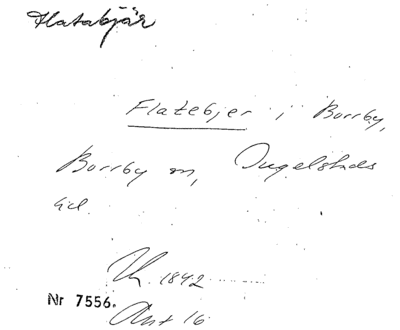 Flatabjär
Flatebjer i Borrby,
Borrby sn, Ingelstads
hd.
1842
Nr 7556.
Ant 16